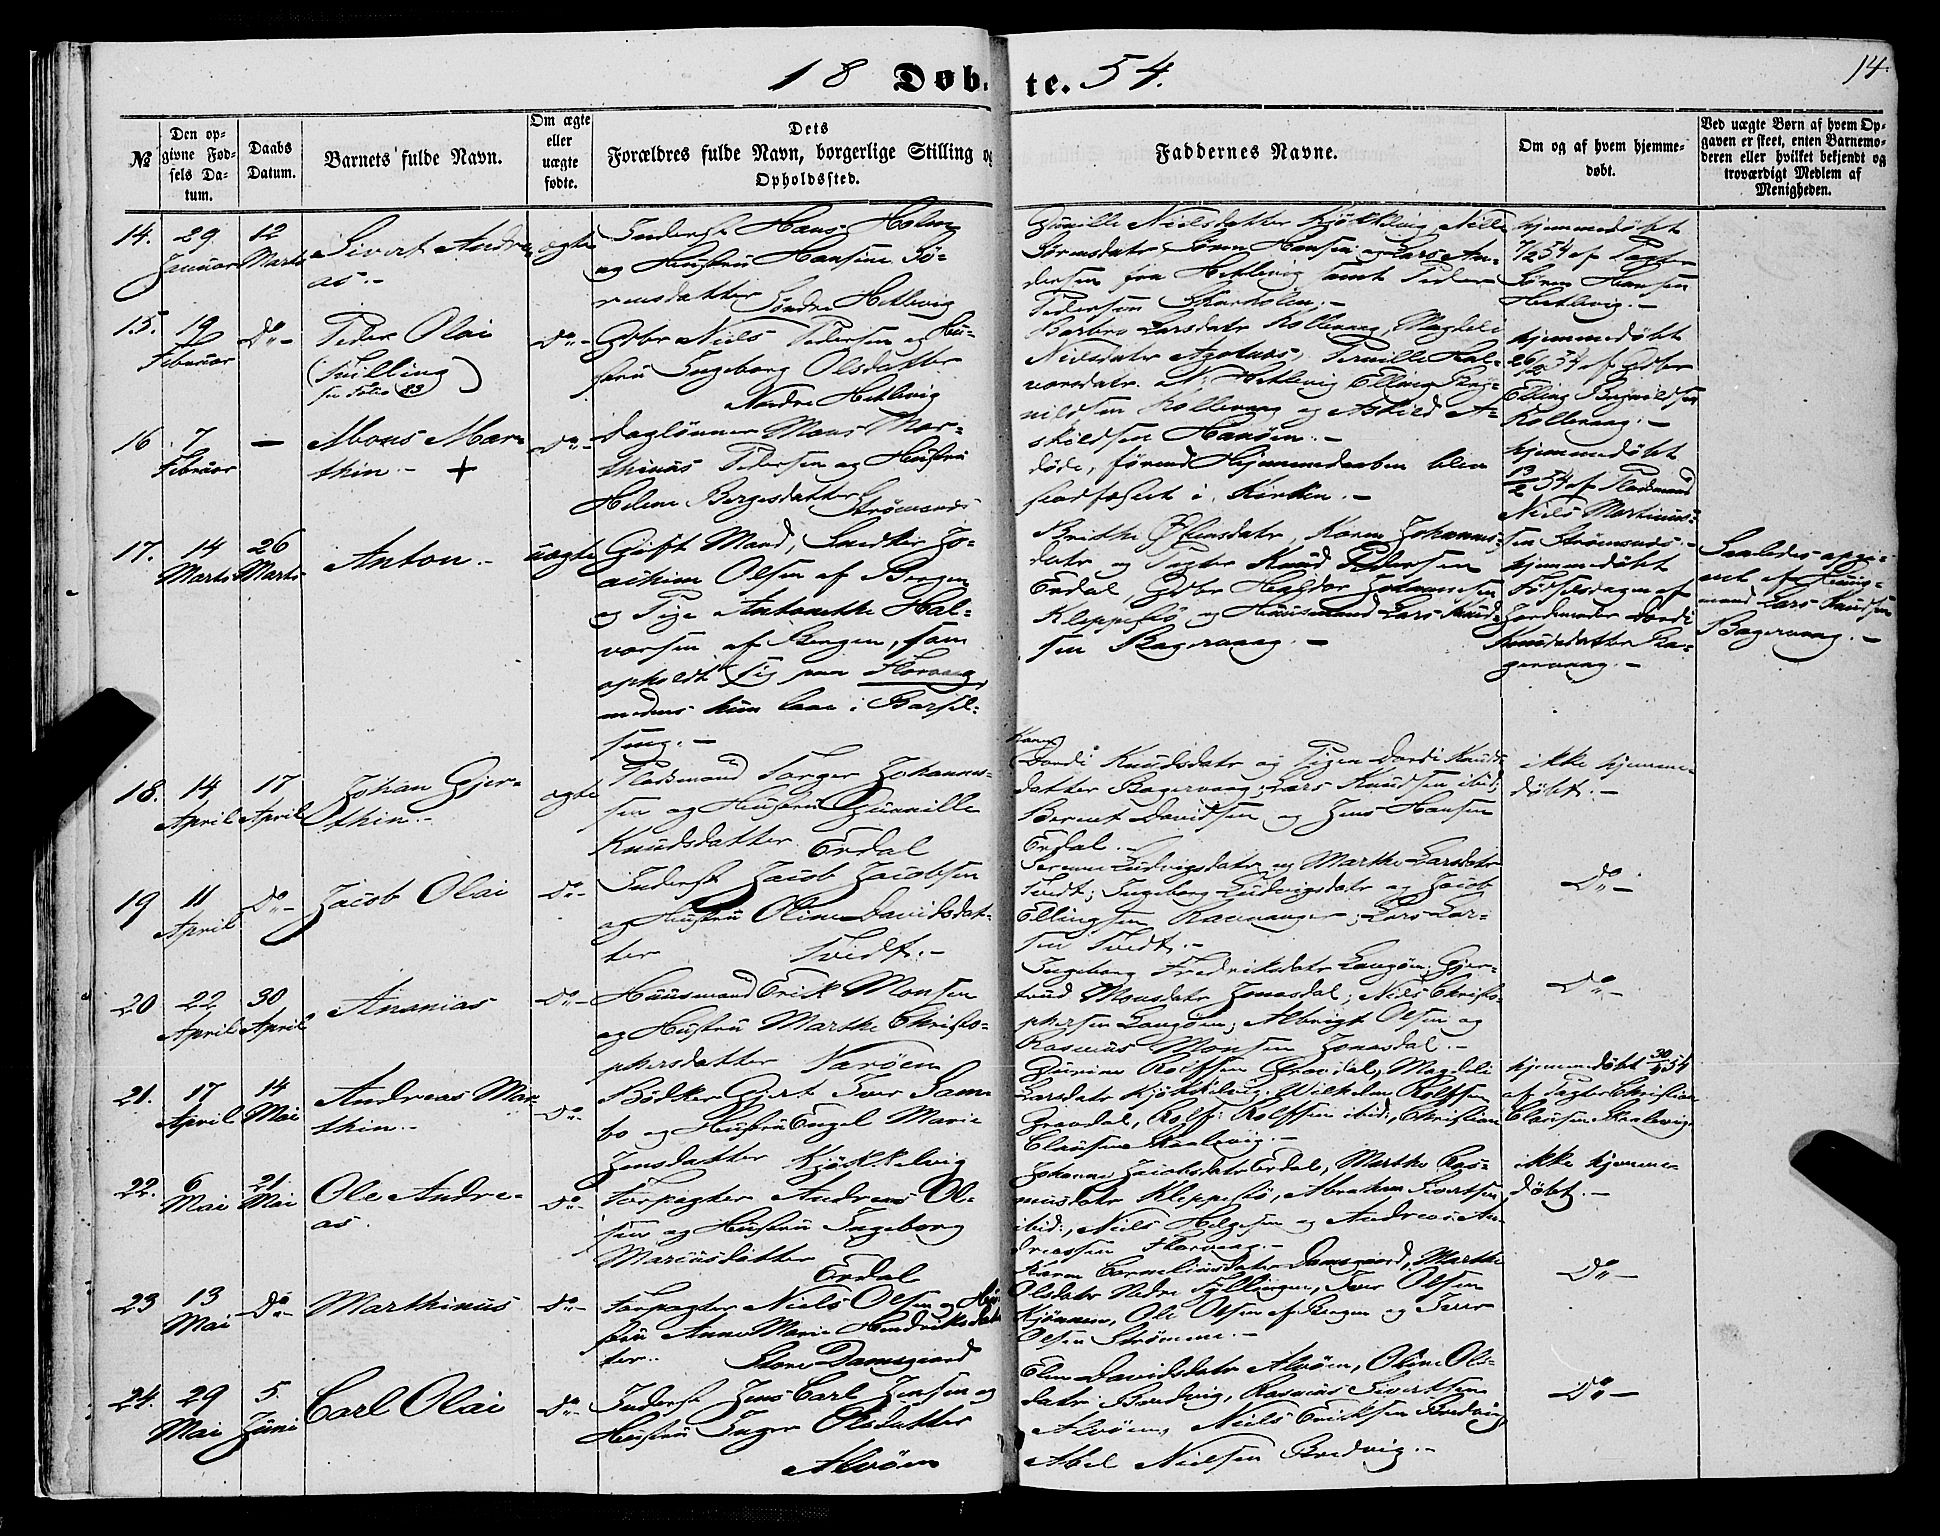 18 Døb-te. 54.
14.
№
Den op-
givne Fød-
sels Da-
tum.
Daabs
Datum.
Barnets fulde Navn.
Om ægte
eller
uægte
fødte.
Dets
Forældres fulde Navn, borgerlige Stilling og
Opholdssted.
Faddernes Navne.
Om og af hvem hjemme-
døbt.
Ved uægte Børn af hvem Op-
gaven er skeet, enten Barnemo-
deren eller hvilket bekjendt og
troværdigt Medlem af
Menigheden.
14.
29
Januar
12
Marts
Sivert Andre-
as.-
ægte
Inderst Hans Helm
og Hustru Hansine Sø-
rensdatter
Søndre Hetlevig
Gunille Nielsdatter Kjøkkelvig, Nille
Sørensdatr, Søren Hansen og Lars An-
dersen fra Hetlevig samt Peder
Pedersen
hjemmedøbt
7/2 54 af Pagter
Søren Hansen
Hetlevig.-
15.
19
Februar
Do-
Peder Olai
(Tvilling)
se Folio 83
Do-
Gdbr Niels Pedersen og Hu-
stru Ingeborg Olsdatter
Nordre Hetlevig
Barbro Larsdatr Kollevaag, Magdeli
Nielsdatr Pernille Hal-
vorsdatr. N: Hetlevig Elling Røg-
nildsen Kollevaag og Askild A-
skildsen Hanøen.-
hjemmedøbt
26/2 54 af Gdbr
Elling Røgnildsen
Kollevaag.-
16
7
Februar
-
Mons Mar-
thin.- +
Do-
Daglønner Mons Mar-
thinus Pedersen og Hustru
Helene Børgesdatter
Strømsnes
døde, førend Hjemmedaaben blev
stadfæstet i Kirken.-
hjemmedøbt
13/2 54 af Pladsmand
Niels Martinus-
sen Strømsnes.-
17.
14
Marts
26
Marts
Anton.-
uægte
Gift Mand, Snedker Jo-
achim Olsen af Bergen
og Pige Antonette Hal-
vorsen af Bergen, som
opholdt sig paa Florvaag,
medens hun laae i Barsel-
seng.-
Brithe Johannes-
datr og Pagter Knud Pedersen
Erdal, Gdbr Haldor Johannesen
Kleppestø og Huusmand Lars Knud-
sen Bagervaag.-
hjemmedøbt
Fødselsdagen af
Jordemoder Dordi
Knudsdatter Ba-
gervaag.-
Saaledes opgi-
vet af Huus-
mand Lars Knudsen
Bagervaag.-
18.
14
April
17
April
Johan Gjer-
thin.-
ægte
Pladsmand Torger Johannes-
sen og Hustru Gunnille
Knudsdatter Erdal
Karen
Dordi Knudsdatr og Pigen Dordi Knuds-
datter Bagervaag; Lars Knudsen ibid;
Bernt Davidsen og Jens Hansen
Erdal.-
ikke hjemme-
døbt.-
19
11
April
Do-
Jacob Olai
Do-
Inderst Jacob Jacobsen
og Hustru Oline Davidsdat-
ter Tvedt.-
Serene Ludvigsdatr og Marthe Larsdatr
Tvedt; Ingeborg Ludvigsdatr og Jacob
Ellingsen Ravnanger; Lars Lar-
sen Tvedt.-
Do-
20
22
April
30
April
Ananias
Do-
Huusmand Erik Monsen
og Hustru Marthe Christo-
phersdatter Narøen
Ingeborg Fredriksdatr Langøen, Gjer-
trud Monsdatr Janasdal; Niels Christo-
phersen Langøen; Albrigt Olsen og
Rasmus Monsen Janasdal.-
Do-
21.
17
April
14
Mai
Andreas Mar-
thin.-
Do-
Bødker Gjert Iver Sam-
bo og Hustru Engel Marie
Jensdatter Kjøkkelvig
Gurine Rolfsen Gravdal, Magdeli
Larsdatr Kjøkkelvig, Wilhelm Rolfsen
Gravdal, Rolf Rolfsen ibid:, Christian
Clausen Skaalevig.-
hjemmedøbt 30/4 54
af Pagter Christian
Clausen Skaalevig
22.
6
Mai
21
Mai
Ole Andre-
as.
Do-
Forpagter Andreas Ol-
sen og Hustru Ingeborg
Mariusdatter
Erdal
Johanne Jacobsdatr Erdal, Marthe Ras-
musdatr Kleppestø, Abraham Sivertsen
ibid:, Niels Helgesen og Andreas An-
dreassen Florvaag.-
ikke hjemme-
døbt.-
23
13
Mai
Do-
Marthinus
Do-
Forpagter Niels Olsen og Hu-
stru Anne Marie Hendriksdat-
ter.
Store Damsgaard
Karen Corneliusdatr Damsgaard, Marthe
Olsdatr Nedre Fyllingen, Iver Olsen
Kjønnen, Ole Olsen af Bergen og Iver
Olsen Strømme.-
Do-
24.
29
Mai
5.
Juni
Carl Olai
Do-
Inderst Jens Carl Jensen og
Hustru Inger Olsdatter
Alvøen
Elen Davidsdatr Alvøen, Oline Ols-
datr Bredvig, Rasmus Sivertsen
Alvøen, Niels Eriksen Bredvig,
Abel Nielsen Bredvig.-
Do-